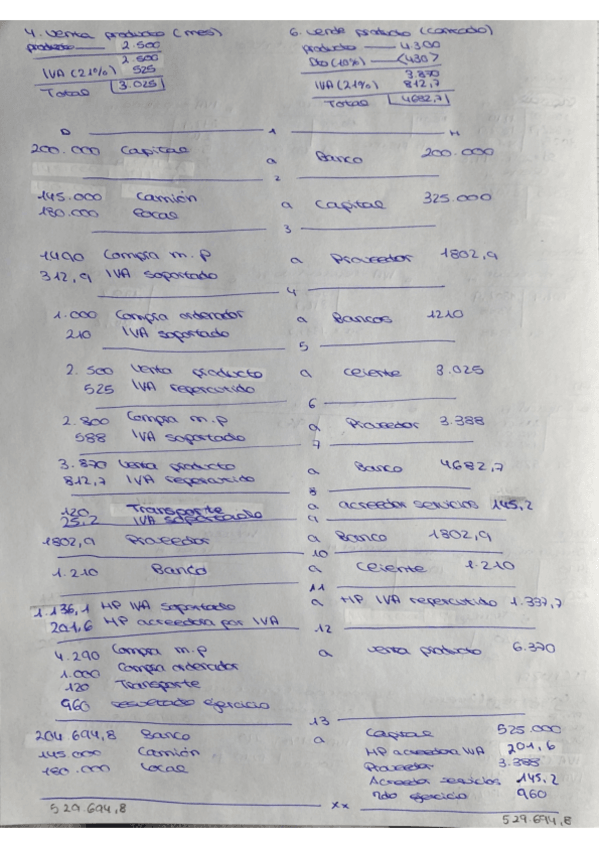 4. Venta producto (mes)
producto — 2.500
2.500
IVA (21%) 525
Total 3.025
6. Vende producto (contado)
producto — 4.300
Dto (10%) — <430>
3.870
IVA (21%) 812,7
Total 4682,7
D 1 H
200.000 Capital a Banco 200.000
2
145.000 Camión a Capital 325.000
180.000 Local
3
1490 Compra m.p a Proveedor 1802,9
312,9 IVA soportado
4
1.000 Compra ordenador a Bancos 1210
210 IVA soportado
5
2.500 Venta producto a Cliente 3.025
525 IVA repercutido
6
2.800 Compra m.p a Proveedor 3.388
588 IVA soportado
7
3.870 Venta producto a Banco 4682,7
812,7 IVA repercutido
8
120 Transporte a acreedor servicios 145,2
25,2 IVA soportado
9
1802,9 Proveedor a Banco 1802,9
10
1.210 Banco a Cliente 1.210
11
1.136,1 HP IVA soportado a HP IVA repercutido 1.337,7
201,6 HP acreedora por IVA
12
4.290 Compra m.p a Venta producto 6.370
1.000 Compra ordenador
120 Transporte
960 resultado ejercicio
13
204.694,8 Banco a Capital 525.000
145.000 Camión HP acreedora IVA 201,6
180.000 Local Proveedor 3.388
Acreedor servicios 145,2
rdo ejercicio 960
xx
529.694,8 529.694,8